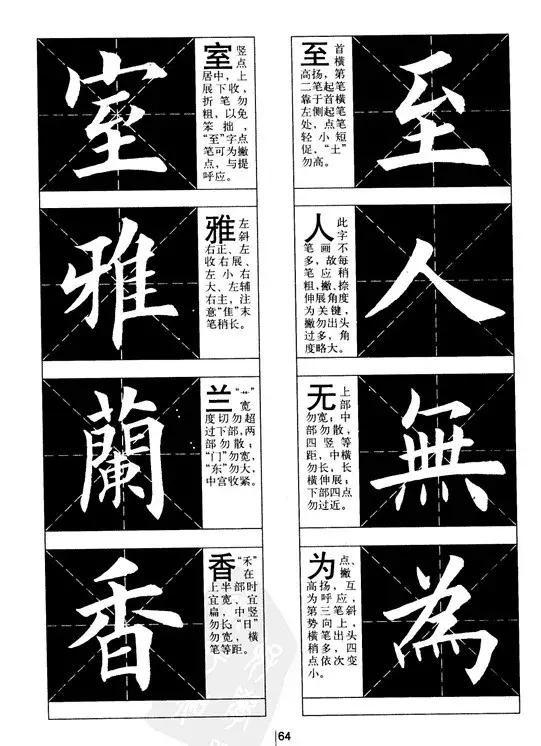 室
室竖点
居中，上
展下收，
折笔勿
粗，以免
笨拙，
“至”字点
笔可为撇
点，与提
呼应。
雅
雅左斜
右正、左
收右展、
左小右
大、左辅
右主，注
意“隹”末
笔稍长。
蘭
兰“艹”宽
度切勿超
过下部，两
部勿散；
“门”勿宽，
“东”勿大，
中宫收紧。
香
香“禾”在
上半部时
宜宽、宜
扁，中竖
勿长“日”
勿宽，横
笔等距。
至
至首横
高扬，第
二笔起笔
靠于首横
左侧起笔
处，点笔
轻小短
促，“土”
勿高。
人
人此字
笔画不
多，故每
笔应稍
粗，撇、捺
伸展角度
为关键，
撇勿出头
过多，角
度略大。
無
无上部
勿宽；中
部勿散，
四竖等
距，中横
勿长，长
横伸展；
下部四点
勿过近。
為
为点、撇
高扬，互
为呼应，
第三笔斜
势向上，
横笔出头
稍多，四
点依次变
小。
64